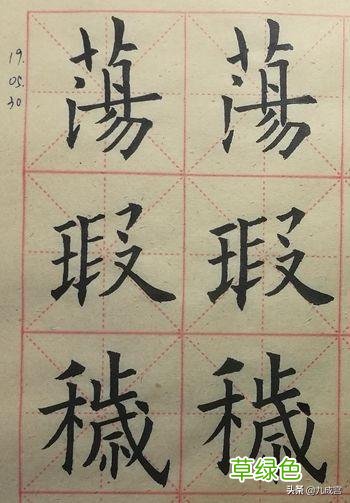 19.
05.
30
蕩 蕩
瑕 瑕
穢 穢
草绿色
头条 @九成宫